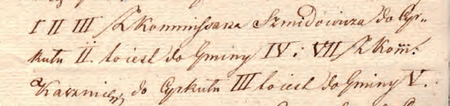 I II III Z Kommissarza Szmidowicza do Cyr-
kułu II. to iest do Gminy IV. i VII Z Kom:
do Cyrkułu III to iest do Gminy V.